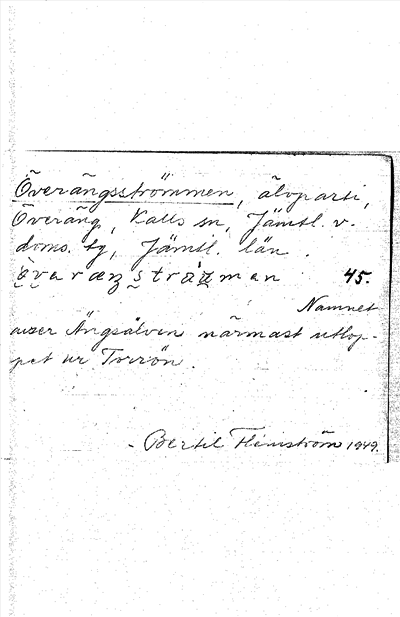 Överängsströmmen, älvparti,
Överäng, Kalls sn, Jämtl. v.
doms. tg, Jämtl. län.
45.
Namnet
avser Ängsälven närmast utlop-
pet ur Torrön.
Bertil Flemström 1949.